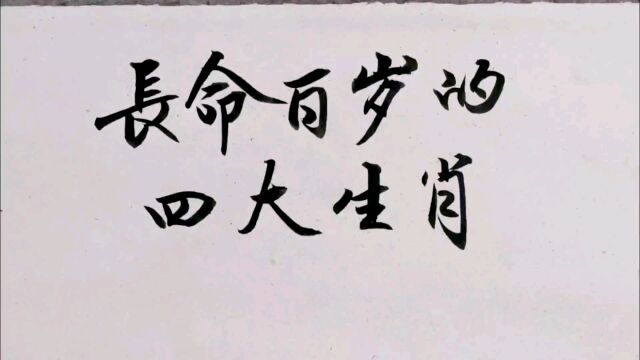 長命百岁的
四大生肖